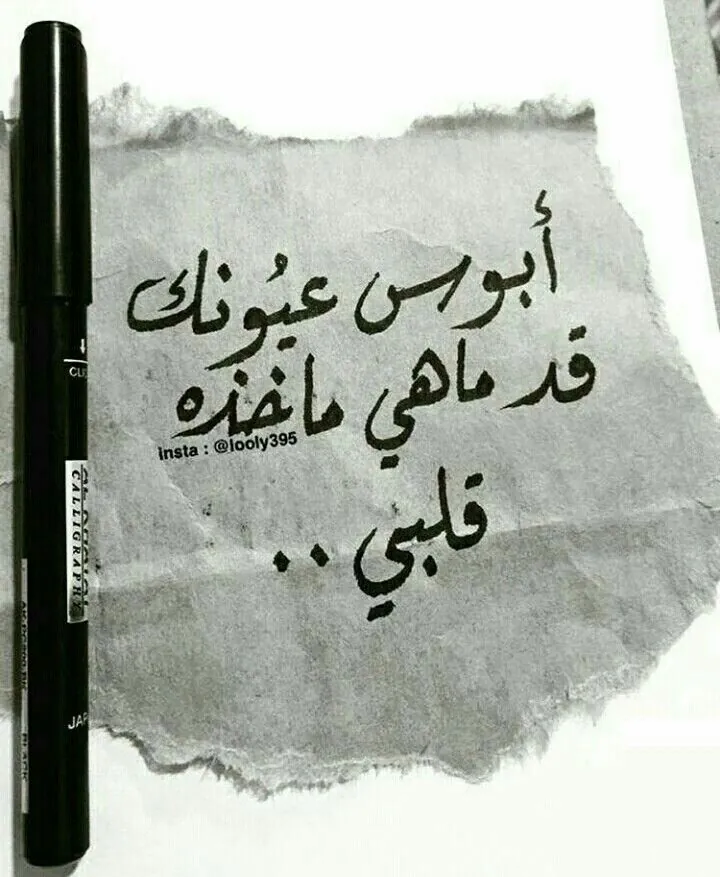 أبوس عيُونك
قد ماهي ماخذه
insta : @looly395
قلبي ..
CALLIGRAPHY
JAP
BLACK